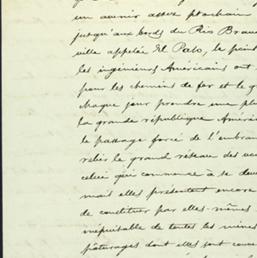 un avenir assez prochain
jusqu'aux bords du Rio Brav
ville appelée El Paso, le point
les ingénieurs Américains ont
pour les chemins de fer et le
chaque jour prendre une pl
la grande république Améri
le passage forcé de l'embran
relier le grand réseau des
celui qui commence à se
mais elles présentent encore
de constituer par elles-mêmes
inépuisable de toutes les mines
pâturages dont elles sont couve